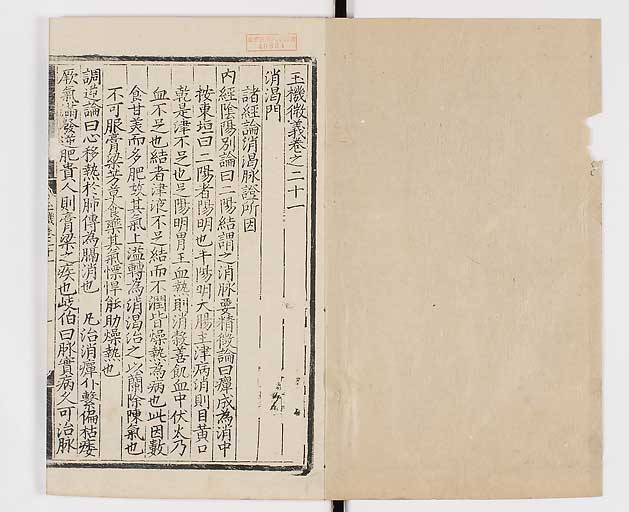 玉機微義卷之二十一
消渴門
諸經論消渴脉證所因
內經陰陽別論曰二陽結謂之消脉要精微論曰癉成為消中
按東垣曰二陽者陽明也手陽明大腸主津病消則目黃口
乾是津不足也足陽明胃主血熱則消穀善飢血中伏火乃
血不足也結者津液不足結而不潤皆燥熱為病也此因數
食甘美而多肥故其氣上溢轉為消渴治之以蘭除陳氣也
不可服膏粱芳草食藥其氣慓悍能助燥熱也
調逆論曰心移熱於肺傳為膈消也 凡治消癉仆擊偏枯痿
厥氣滿發逆肥貴人則膏粱之疾也岐伯曰脉實病久可治脉